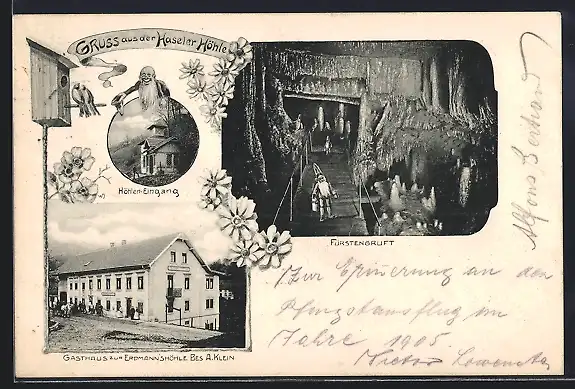 GRUSS aus der Haseler Höhle
Höhlen-Eingang
FÜRSTENGRUFT
GASTHAUS ZUR ERDMANNSHÖHLE BES A. KLEIN
Zur Erinerung an den
Pfingstausflug im
Jahre 1905.
Victor
Alfons Bertrand